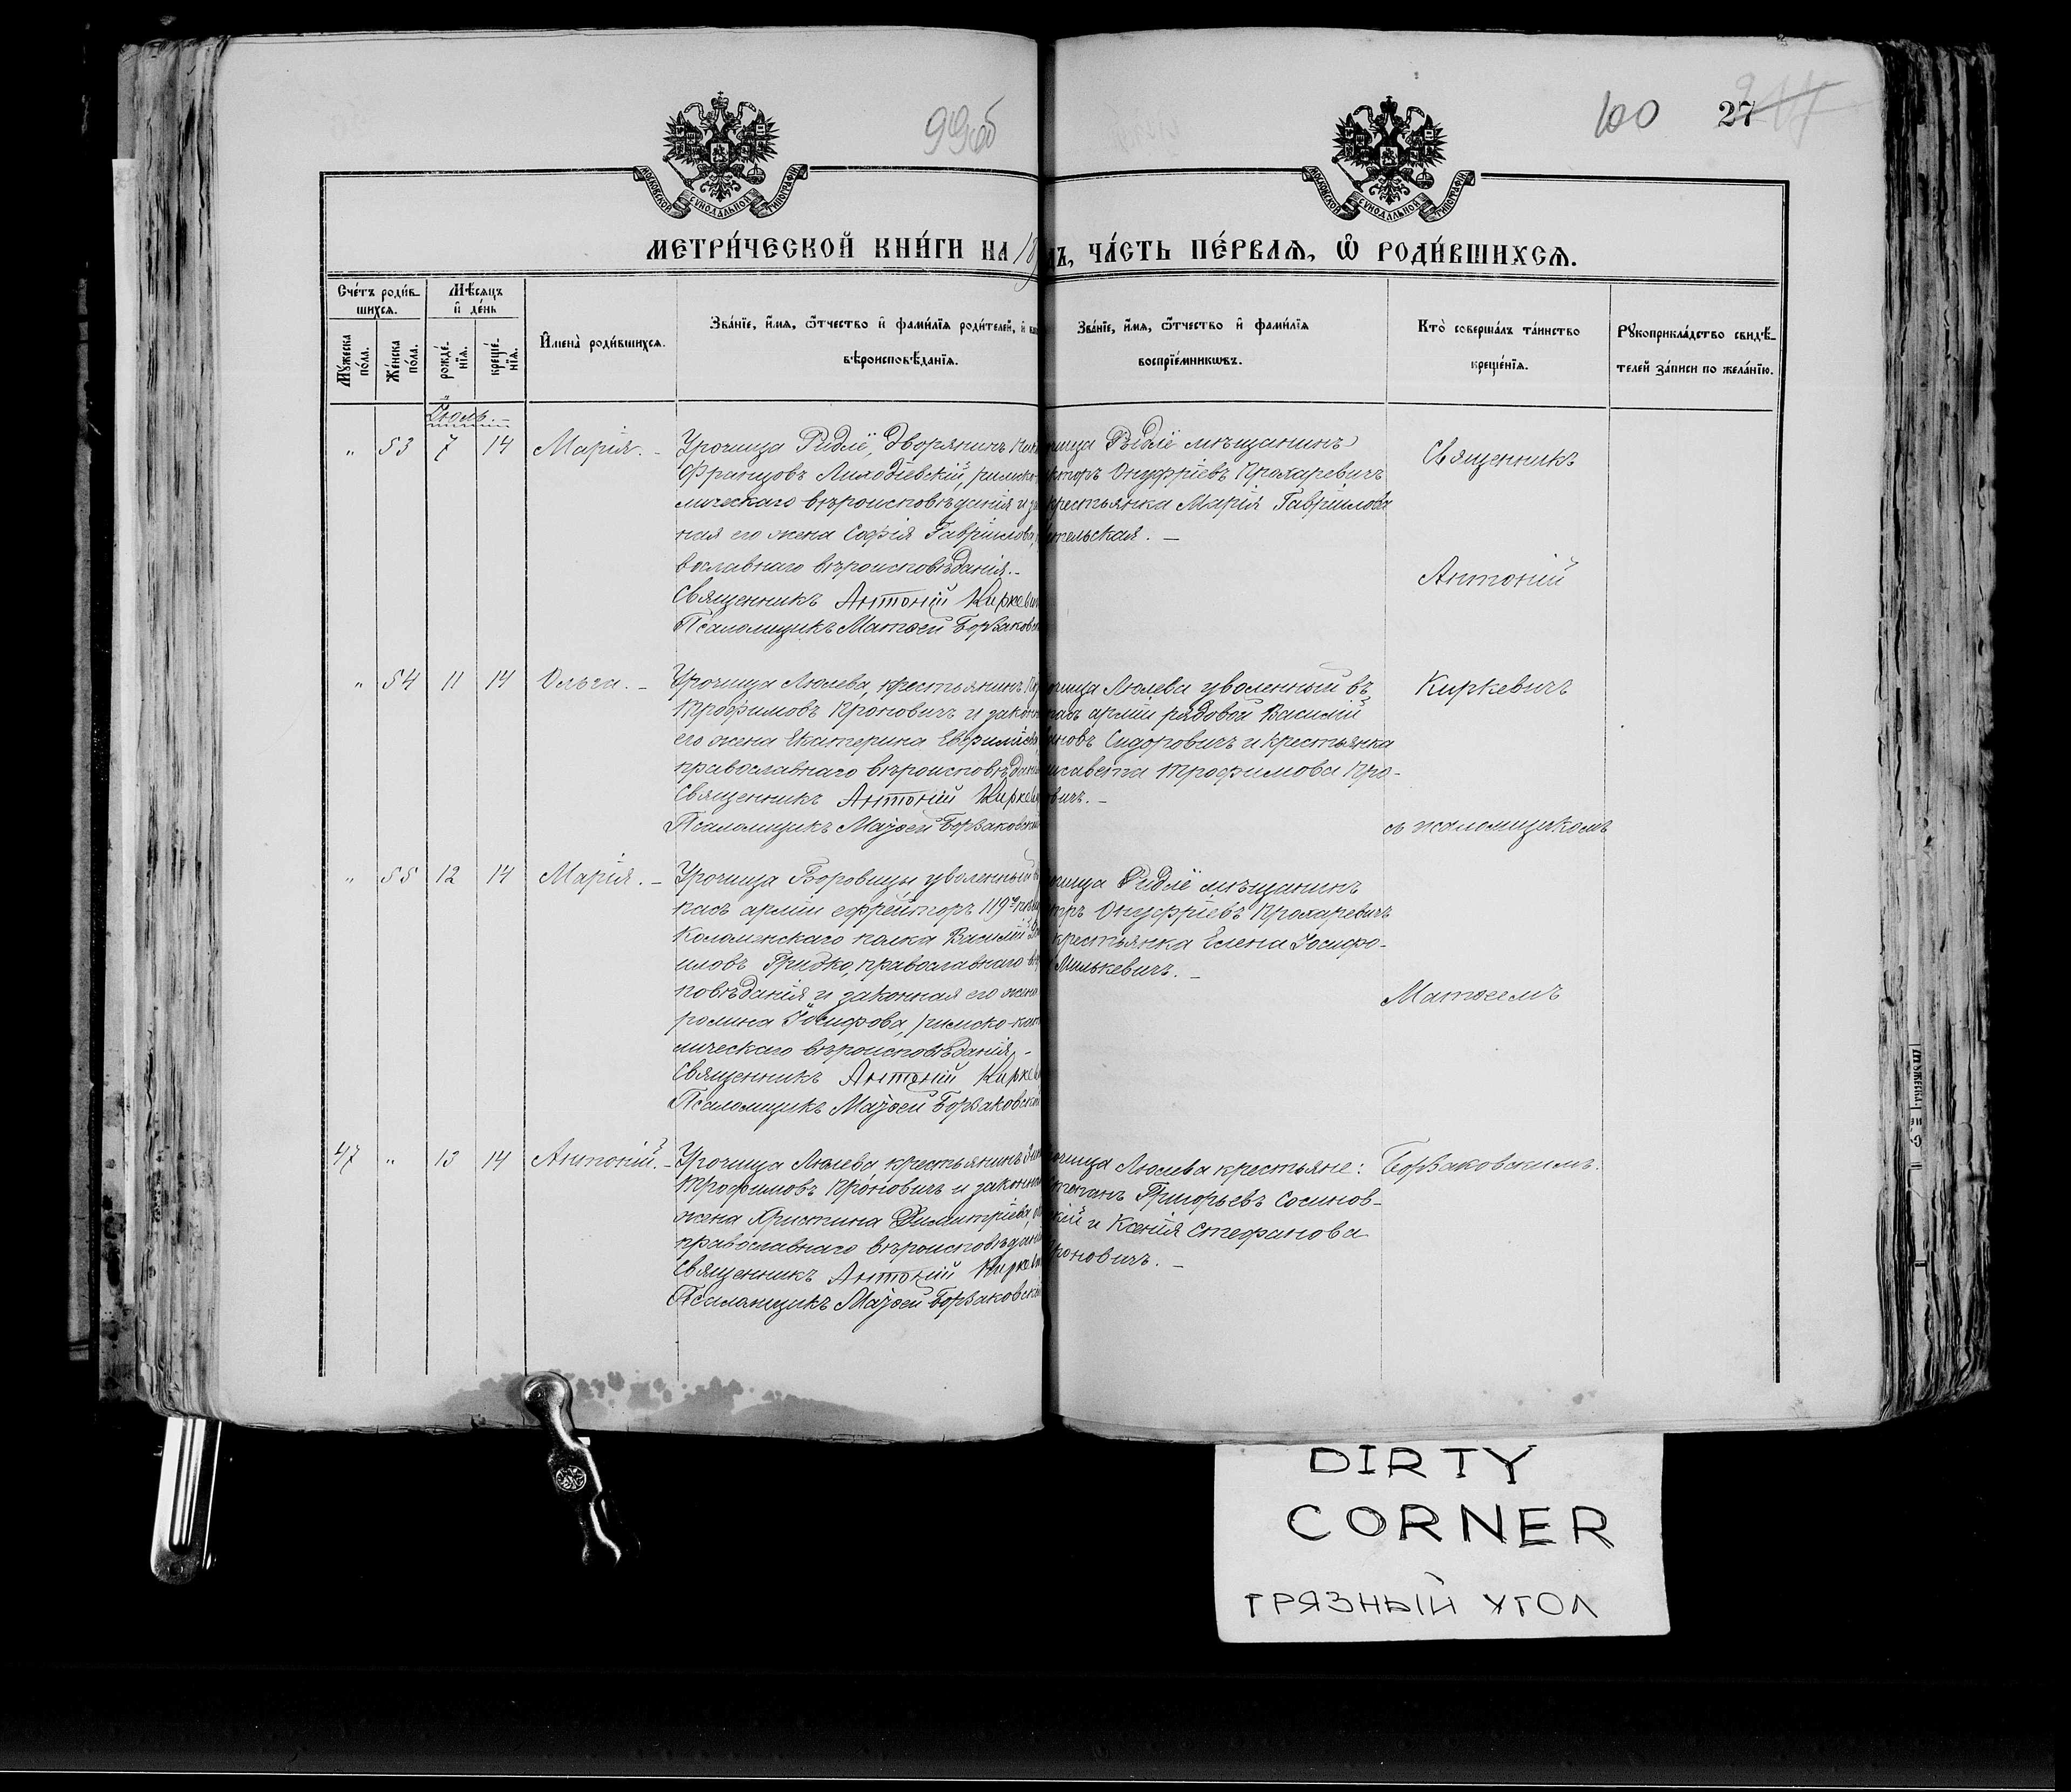 99об
100 27
МОСКОВСКОЙ СѴНОДАЛЬНОЙ ТИПОГРАФІИ
МОСКОВСКОЙ СѴНОДАЛЬНОЙ ТИПОГРАФІИ
МЕТРИ́ЧЕСКОЙ КНИ́ГИ НА 18 ДЪ, ЧА́СТЬ ПЕ́РВАѦ, Ѽ РОДИ́ВШИХСѦ.
Сче́тъ роди́в-
шихсѧ.
Мꙋ́жеска по́ла.
Же́нска по́ла.
Мѣ́сѧцъ и҆ де́нь
рожде́-
нїѧ.
креще́-
нїѧ.
И҆мена̀ роди́вшихсѧ.
Зва́нїе, и҆́мѧ, ѻ҆́тчество и҆ фами́лїѧ роди́телей, и҆
вѣроисповѣ́данїѧ.
Зва́нїе, и҆́мѧ, ѻ҆́тчество и҆ фами́лїѧ
воспрїе́мникѡвъ.
Кто̀ соверша́лъ та́инство
креще́нїѧ.
Рꙋкоприкла́дство свидѣ́-
телей за́писи по жела́нїю.
Іюль.
" 53 7 14 Марія. –
Урочища Ридлё, дворянинъ
Францовъ Лиходіевскій, римско-
лическаго вѣроисповѣданія и за
ная его жена Софія Гавріилова,
вославнаго вѣроисповѣданія. –
Священникъ Антоній Киркевич
Псаломщикъ Матѳей Борзаковск
чища Ридлё мѣщанинъ
кторъ Онуфріевъ Прохаревичъ
крестьянка Марія Гавріилова
тельская. –
Священникъ
Антоній
" 54 11 14 Ольга. –
Урочища Люлева, крестьянинъ
Трофимовъ Кроновичъ и законн
его жена Екатерина Евфиміева,
православнаго вѣроисповѣдані
Священникъ Антоній Киркев
Псаломщикъ Матѳей Борзаковскій
чища Люлева уволенный въ
пасъ арміи рядовой Василій
новъ Сидоровичъ и крестьянка
исавета Трофимова Кро-
овичъ. –
Киркевичъ
съ псаломщикомъ
" 55 12 14 Марія. –
Урочища Боровицы уволенный въ
пасъ арміи ефрейторъ 119го пѣх
Коломенскаго полка Василій
иловъ Гридко, православнаго вѣ
повѣданія и законная его жена
ролина Іосифова, римско-като
лическаго вѣроисповѣданія, –
Священникъ Антоній Киркев
Псаломщикъ Матѳей Борзаковскій
чища Ридлё мѣщанинъ
торъ Онуфріевъ Прохаревичъ
крестьянка Елена Іосифо-
Милькевичъ. –
Матѳеемъ
47 " 13 14 Антоній. –
Урочища Люлева крестьянинъ
Трофимовъ Кроновичъ и законная
жена Христина Димитріева,
православнаго вѣроисповѣдані
Священникъ Антоній Киркев
Псаломщикъ Матѳей Борзаковскій
чища Люлева крестьяне:
Стефанъ Григорьевъ Сосинов-
скій и Ксенія Стефанова
Кроновичъ. –
Борзаковскимъ.
DIRTY
CORNER
ГРЯЗНЫЙ УГОЛ